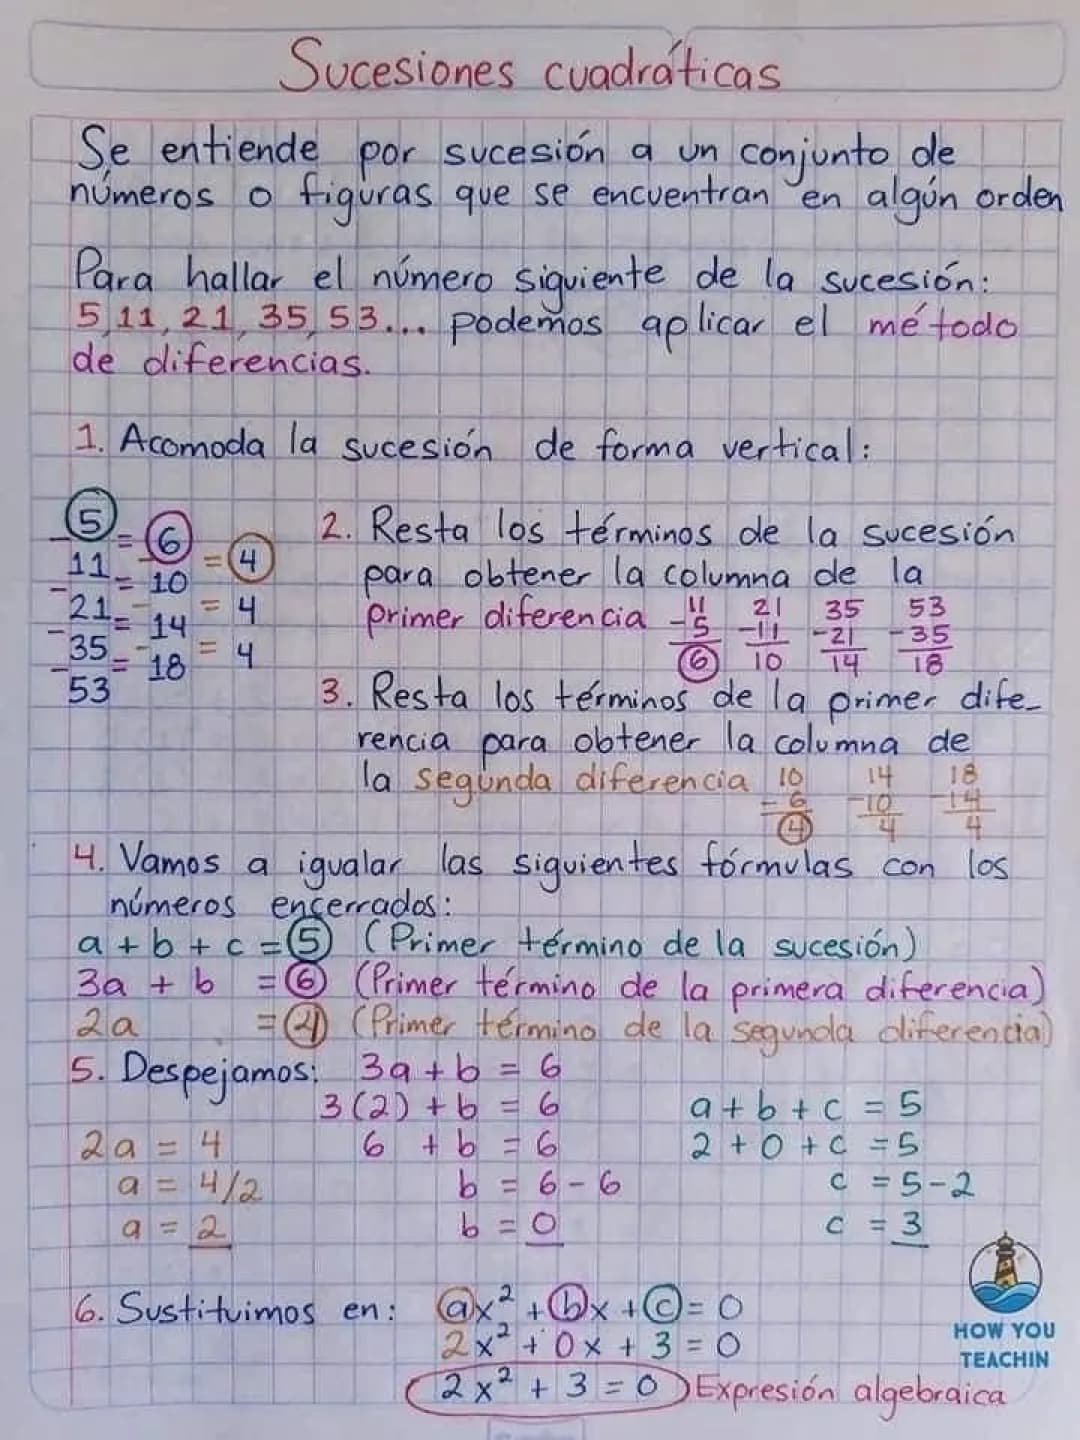 Sucesiones cuadráticas
Se entiende por sucesión a un conjunto de
números o figuras que se encuentran en algún orden
Para hallar el número siguiente de la sucesión:
5, 11, 21, 35, 53... podemos aplicar el método
de diferencias.
1. Acomoda la sucesión de forma vertical:
5
- = 6
11 = 4
- = 10
21 = 4
- = 14
35 = 4
- = 18
53
2. Resta los términos de la sucesión
para obtener la columna de la
primer diferencia 11 21 35 53
-5 -11 -21 -35
6 10 14 18
3. Resta los términos de la primer dife-
rencia para obtener la columna de
la segunda diferencia 10 14 18
-6 -10 -14
4 4 4
4. Vamos a igualar las siguientes fórmulas con los
números encerrados:
a + b + c = 5 (Primer término de la sucesión)
3a + b = 6 (Primer término de la primera diferencia)
2a = 4 (Primer término de la segunda diferencia)
5. Despejamos:
2a = 4
a = 4/2
a = 2
3a + b = 6
3(2) + b = 6
6 + b = 6
b = 6 - 6
b = 0
a + b + c = 5
2 + 0 + c = 5
c = 5 - 2
c = 3
6. Sustituimos en: ax² + bx + c = 0
2x² + 0x + 3 = 0
2x² + 3 = 0 Expresión algebraica
HOW YOU
TEACHIN